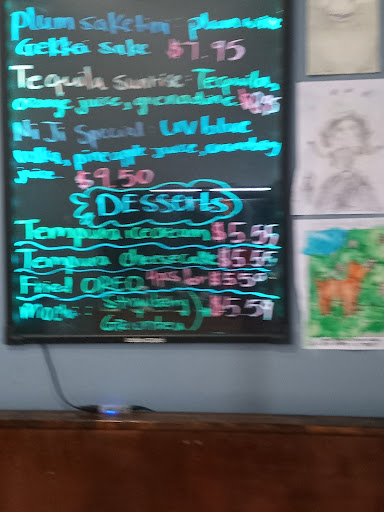 Plum saketini plum wine
Gekki sake $7.95
Tequila sunrise = Tequila,
orange juice, grenadine
Ni Ji Special = UV blue
vodka, pineapple juice, cranberry
juice $9.50
DESSERTS
Tempura icecream $5.55
Tempura cheesecake $5.55
Fried OREO $3.50
Mochi = Strawberry
Green tea $5.59